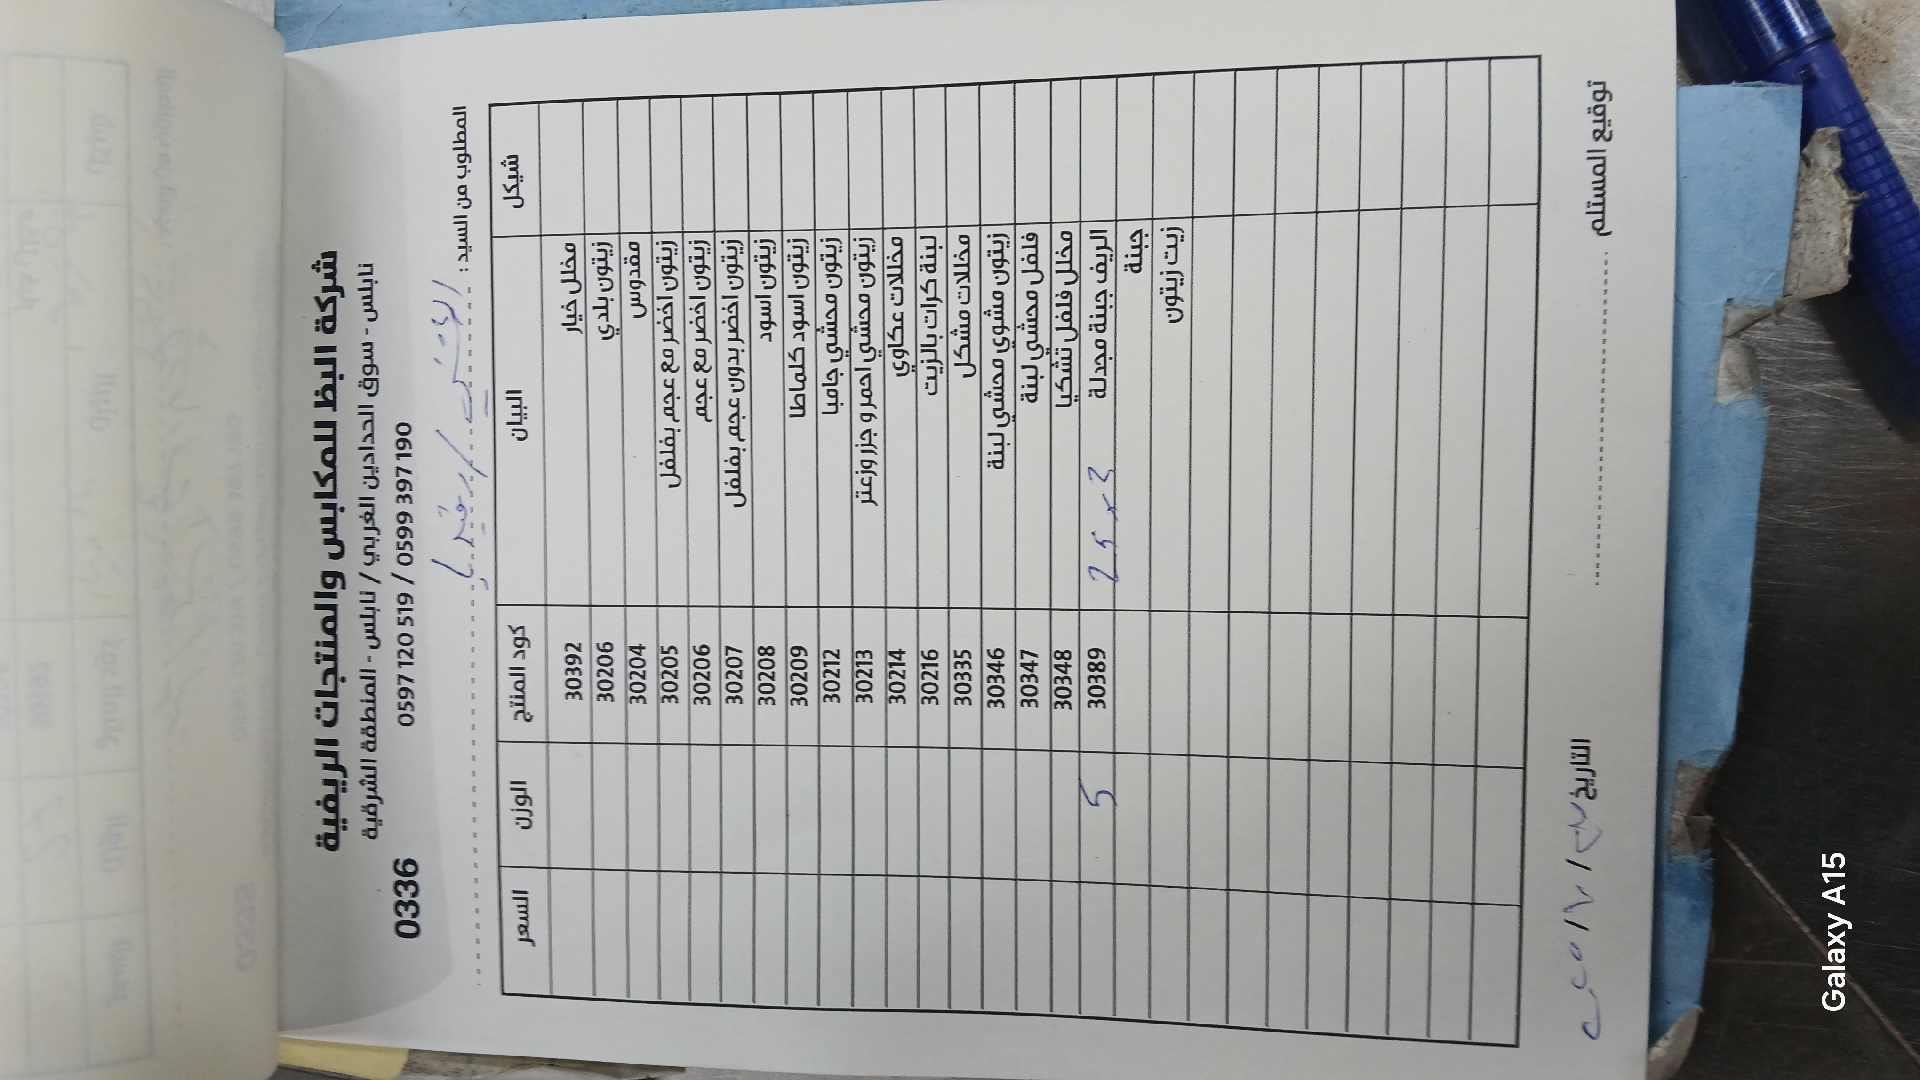 شركة البظ للمكابس والمنتجات الريفية
نابلس - سوق الحدادين الغربي / نابلس - المنطقة الشرقية
0597 120 519 / 0599 397190
0336
المطلوب من السيد :
شيكل البيان كود المنتج الوزن السعر
مخلل خيار 30392
زيتون بلدي 30206
مقدوس 30204
زيتون اخضر مع عجم بفلفل 30205
زيتون اخضر مع عجم 30206
زيتون اخضر بدون عجم بفلفل 30207
زيتون اسود 30208
زيتون اسود كلماطا 30209
زيتون محشي جامبا 30212
زيتون محشي احمر و جزر وزعتر 30213
مخللات عكاوي 30214
لبنة كرات بالزيت 30216
مخللات مشكل 30335
زيتون مشوي محشي لبنة 30346
فلفل محشي لبنة 30347
مخلل فلفل تشكيا 30348
الريف جبنة مجدلة 30389 5
جبنة
زيت زيتون
توقيع المستلم
التاريخ
Galaxy A15